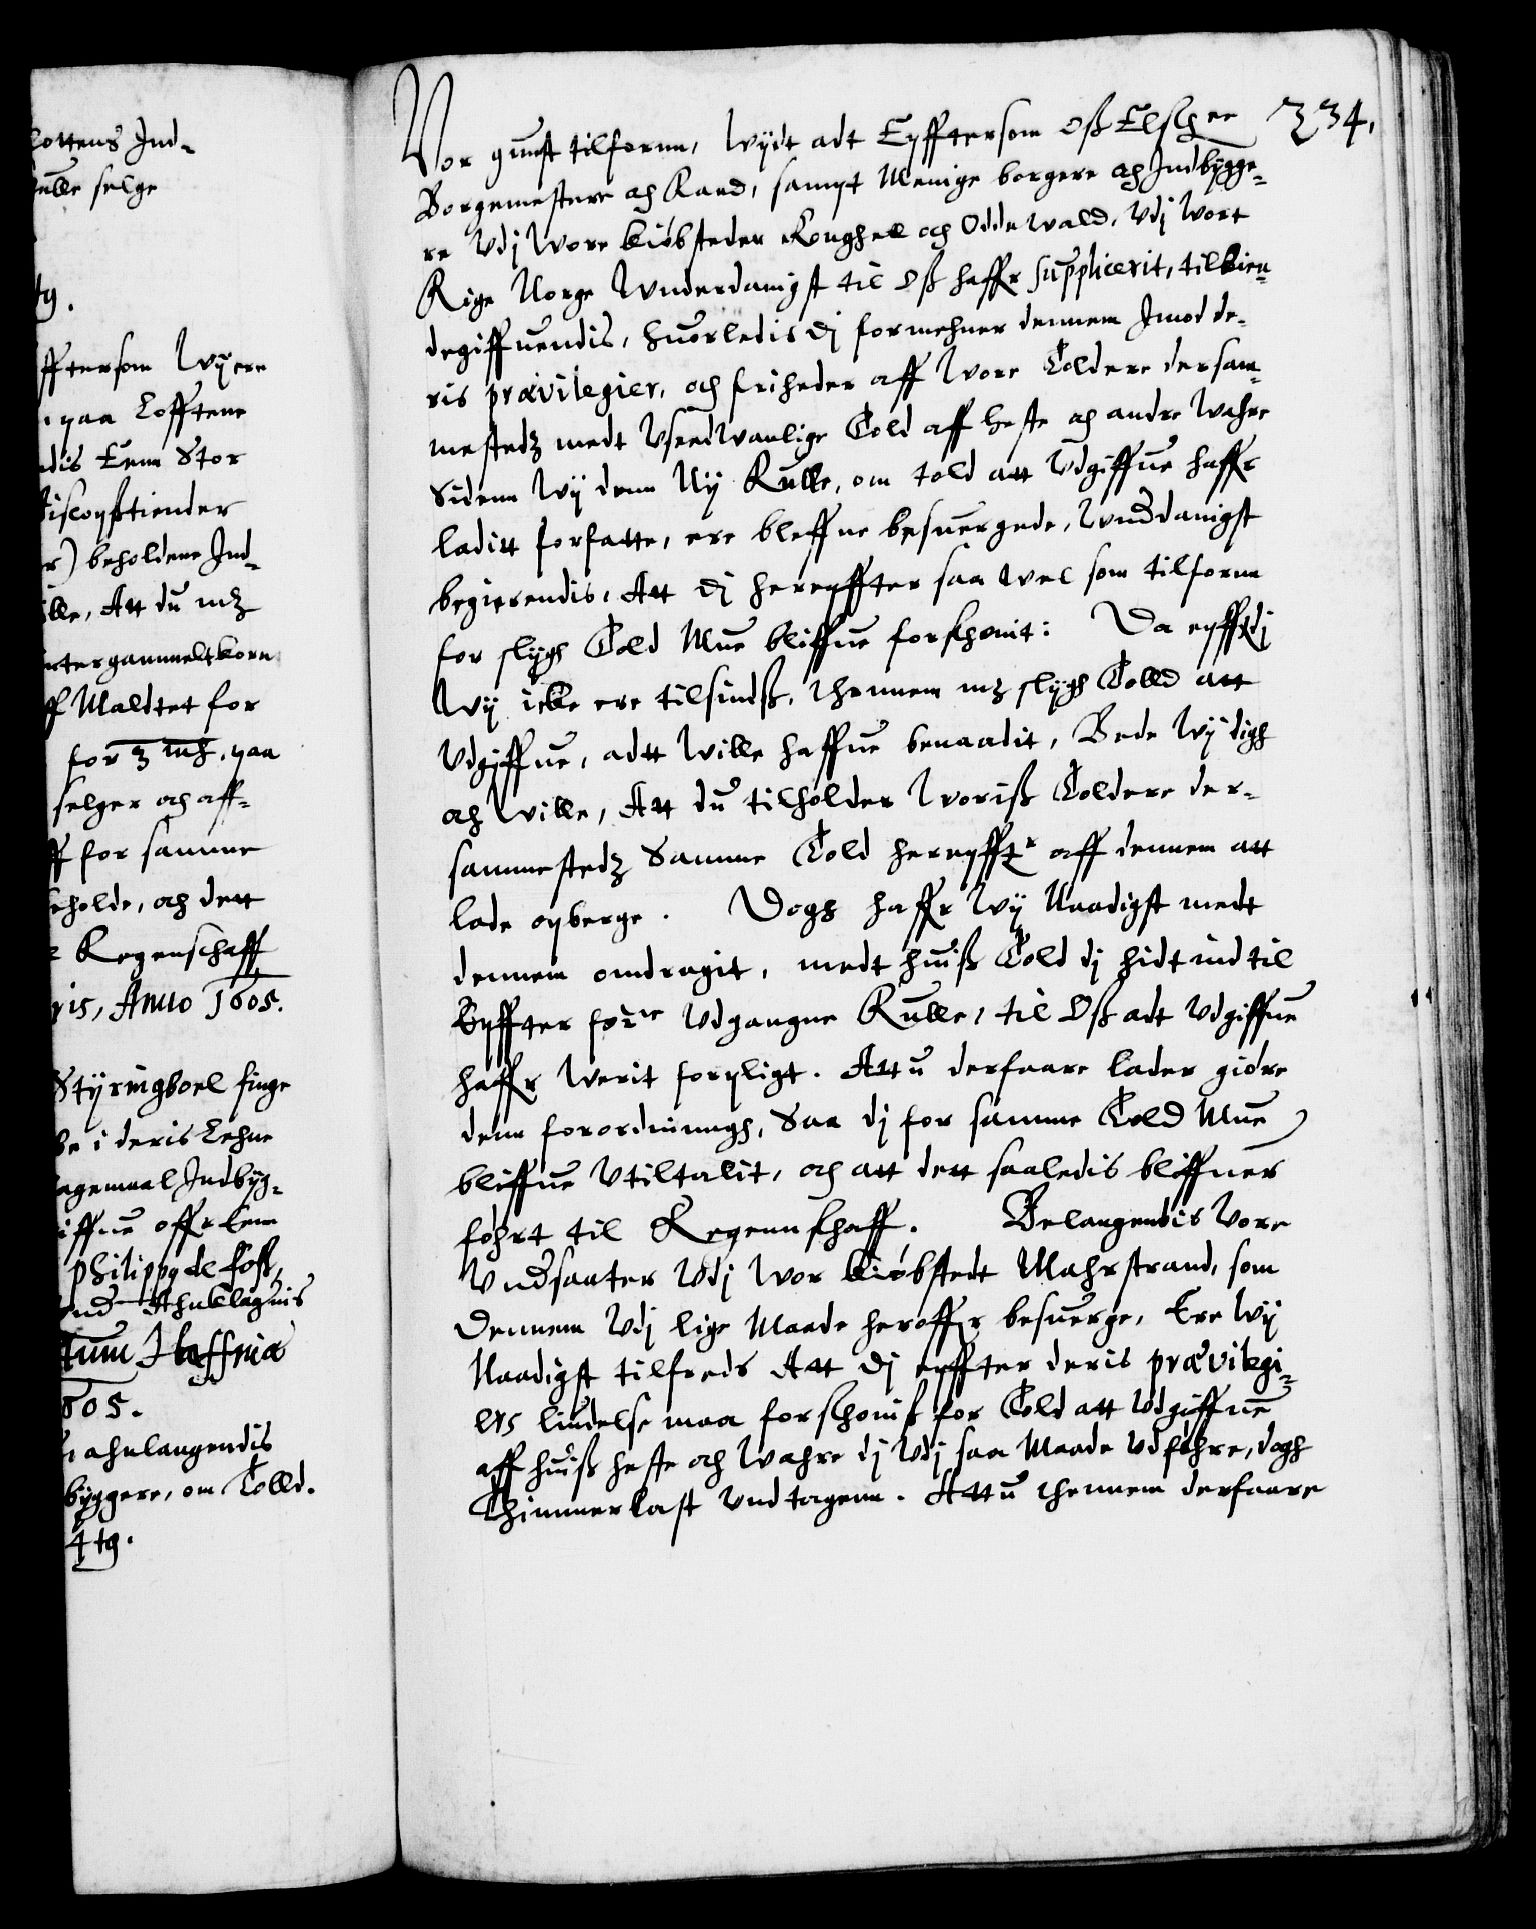 lottens Jnd-
ulle selge
tg.
fftersom Wy ere
paa Lofftene
dis Eenn Stor
Biscopstiender
r) beholdene Jnd-
ille, Att du mz
gammeltkorn
ff Maldtet for
for 3 mk, paa
selger och aff-
ff for samme
eholde, och dett
Regenschaff
is, Anno 1605.
Styringboel finge
i deris Lehne
agemaal Jndbyg-
iffue offr
Philippo de foss,
tum Haffniæ
605.
ahnlangendis
byggere, om Tolld.
4 tg.
234.
Vor gunst tilfornn, Wydt adt Eyfftersom Oß Elschee
Borgemestere och Raad, sampt Menige borgere och Jndbygge-
re Vdj Wore kiöbsteder Konghell och Oddewald, Vdj Wort
Rige Norge Wnderdanigst til Oß haffr supplicerit, tilkien-
degiffuendis, huorledis dj formehner dennem Jmod de-
ris prævilegier, och friheder aff Wore Toldere dersam-
mestedz medt Vseedwanlige Told aff heste och andre Wahre
Sidenn Wy denn Ny Rulle, om told att Vdgiffue haffr
laditt forfatte, ere bleffne besuergede, Wnddanigst
begierendis, Att dj hereyffter saa wel som tilfornn
for slygh Told Mue bliffue forskonit: Da eyfftdj
Wy icke ere tilsindß, thennem mz slygh Tolld att
Vdgiffue, adtt Wille haffue benaadit, Bede Wy digh
och Wille, Att du tilholder Woriß Toldere der-
sammestedz Samme Told hereyfftr aff dennem att
lade opberge. Dogh haffr Wy Naadigst medt
dennem omdragit, medt huiß Told dj hidtindtil
Eyffter forne Vdgangne Rulle, til Oß adt Vdgiffue
haffr Werit forpligt. Attu derfaare lader giöre
denn forordnungh, Saa dj for samme Told Mue
bliffue Vtiltalit, och att dett saaledis bliffuer
föhrt til Regennskhaff. Belangendis Vore
Vndsaater Vdj Wor kiöbstedt Mahrstrand, som
Dennem Vdj lige Maade heroffr besuerge, Ere Wy
Naadigst tilfreds Att dj eyffter deris prævilegi-
ers liudelse maa forskoniß for Told att Vdgiffue
aff huiß heste och Wahre dj Vdj saa Maade Vdföhre, dogh
Thimmerlast Vndtagenn. Attu thennem derfaare